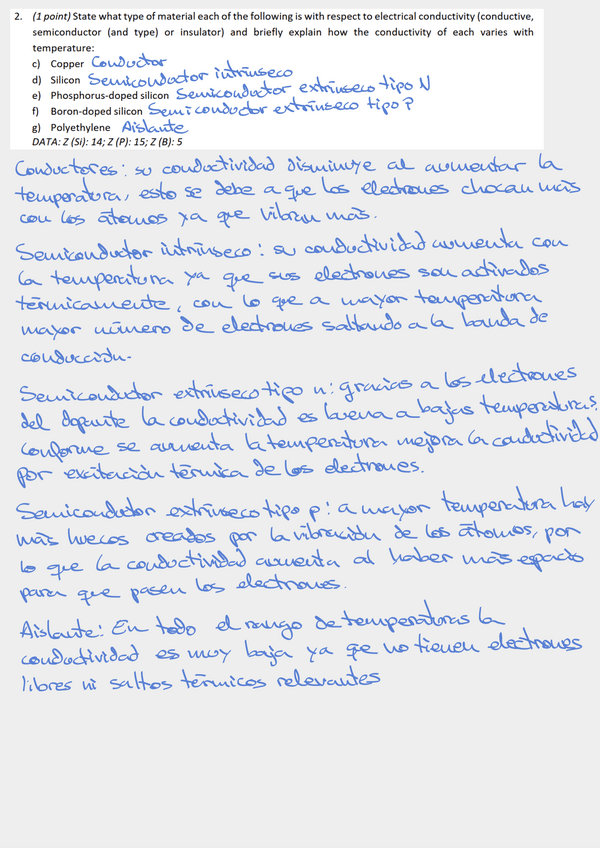 2. (1 point) State what type of material each of the following is with respect to electrical conductivity (conductive,
semiconductor (and type) or insulator) and briefly explain how the conductivity of each varies with
temperature:
c) Copper Conductor
d) Silicon Semiconductor intrínseco
e) Phosphorus-doped silicon Semiconductor extrínseco tipo N
f) Boron-doped silicon Semiconductor extrínseco tipo P
g) Polyethylene Aislante
DATA: Z (Si): 14; Z (P): 15; Z (B): 5
Conductores: su conductividad disminuye al aumentar la
temperatura, esto se debe a que los electrones chocan más
con los átomos ya que vibran más.
Semiconductor intrínseco: su conductividad aumenta con
la temperatura ya que sus electrones son activados
térmicamente, con lo que a mayor temperatura
mayor número de electrones saltando a la banda de
conducción.
Semiconductor extrínseco tipo n: gracias a los electrones
del dopante la conductividad es buena a bajas temperaturas,
conforme se aumenta la temperatura mejora la conductividad
por excitación térmica de los electrones.
Semiconductor extrínseco tipo p: a mayor temperatura hay
más huecos creados por la vibración de los átomos, por
lo que la conductividad aumenta al haber más espacio
para que pasen los electrones.
Aislante: En todo el rango de temperaturas la
conductividad es muy baja ya que no tienen electrones
libres ni saltos térmicos relevantes